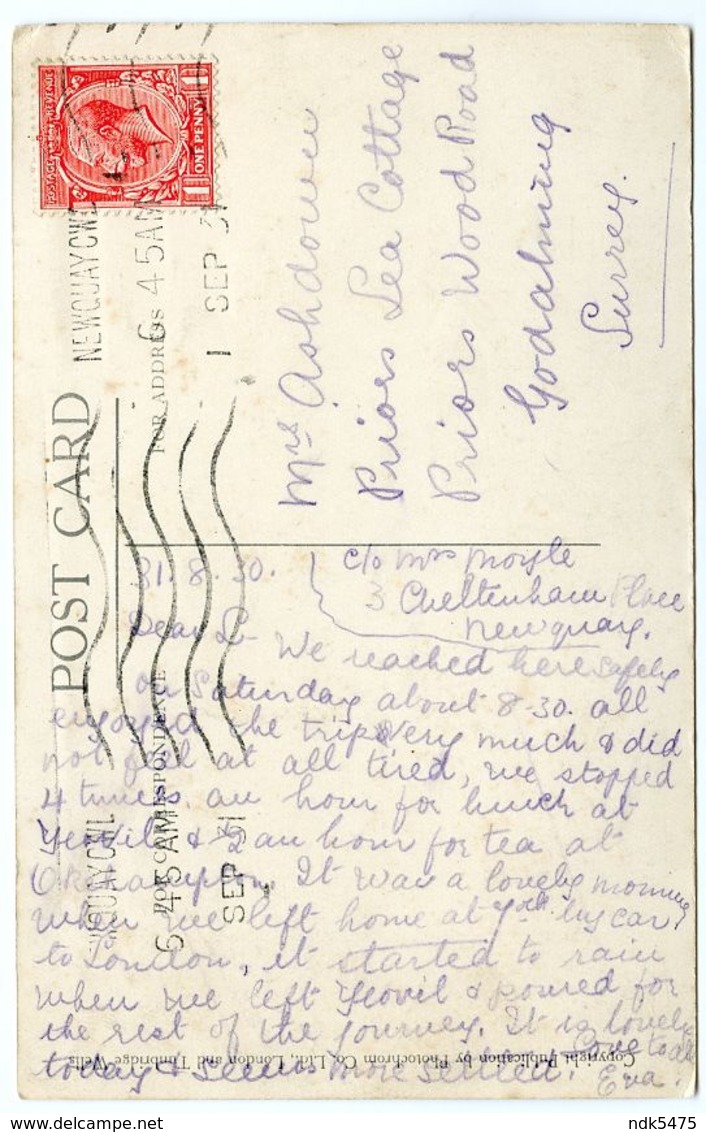 POST CARD
FOR CORRESPONDENCE
FOR ADDRESS
POSTAGE REVENUE
ONE PENNY
1
1
NEWQUAY CWL
6 45 AM
1 SEP 31
NEWQUAY CWL
6 45 AM
SEP 31
Mrs Ashdown
Priors Lea Cottage
Priors Wood Road
Godalming
Surrey.
c/o Mrs Moyle
3 Cheltenham Place
Newquay.
31.8.30.
Dear L— We reached here safely
on Saturday about 8-30. all
enjoyed the trip very much & did
not feel at all tired, we stopped
4 times an hour for lunch at
Yeovil & ½ an hour for tea at
Okehampton. It was a lovely morning
when we left home at by car
to London, it started to rain
when we left Yeovil & poured for
the rest of the journey. It is lovely
today & seems more settled.
Love to all
Eva.
Copyright Publication by Photochrom Co. Ltd., London and Tunbridge Wells
www.delcampe.net
ndk5475